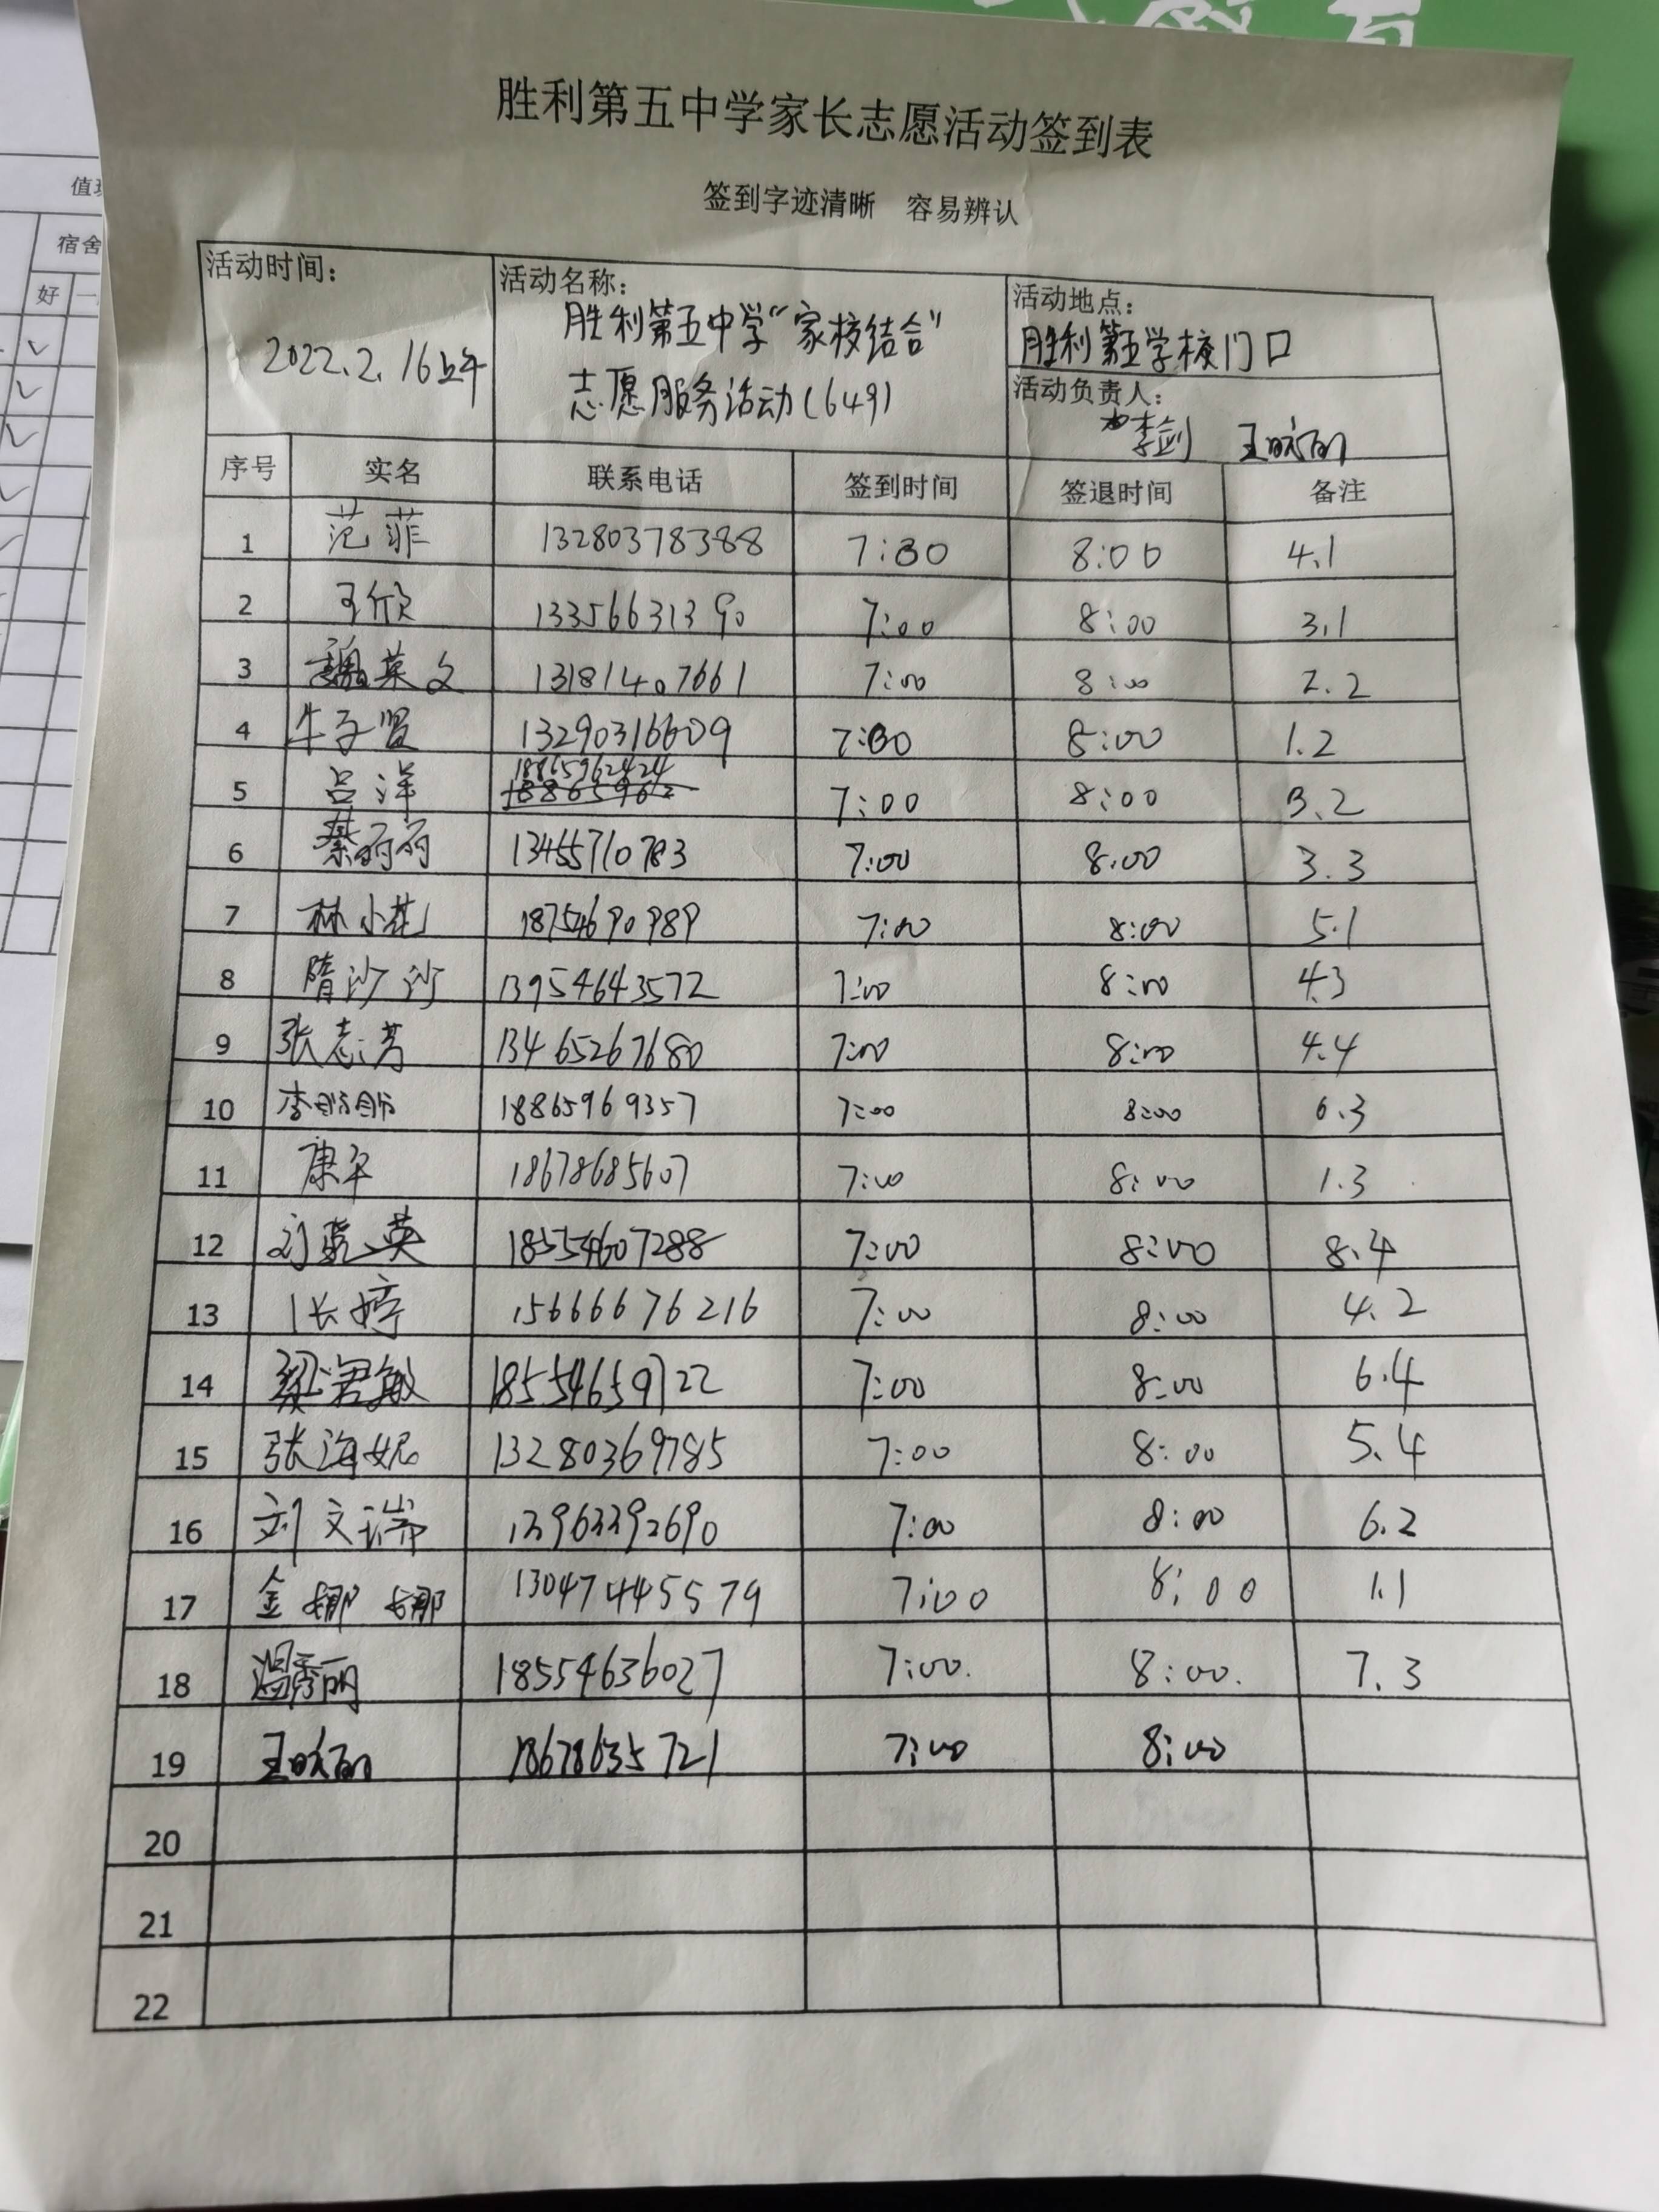 教育
值班
宿舍
好 一
胜利第五中学家长志愿活动签到表
签到字迹清晰 容易辨认
活动时间： 2022.2.16上午
活动名称： 胜利第五中学“家校结合”
志愿服务活动(649)
活动地点：
胜利第五学校门口
活动负责人：
李剑
序号 实名 联系电话 签到时间 签退时间 备注
1 范菲 13280378388 7:30 8:00 4.1
2 王欣 13356631390 7:00 8:00 3.1
3 魏英文 13181407661 7:00 8:00 2.2
4 牛子贤 13290316609 7:30 8:00 1.2
5 吕洋 18865962424 7:00 8:00 3.2
6 綦丽丽 13455710783 7:00 8:00 3.3
7 林小花 18754690989 7:00 8:00 5.1
8 隋沙沙 13954643572 7:00 8:00 4.3
9 张志芳 13465267680 7:00 8:00 4.4
10 李盼盼 18865969357 7:00 8:00 6.3
11 康平 18678685607 7:00 8:00 1.3
12 刘英 18554607288 7:00 8:00 8.4
13 张婷 15666676216 7:00 8:00 4.2
14 梁君敏 18554659722 7:00 8:00 6.4
15 张海妮 13280369785 7:00 8:00 5.4
16 刘文瑞 13963392690 7:00 8:00 6.2
17 金娜娜 13047445579 7:00 8:00 1.1
18 温秀丽 18554636027 7:00. 8:00. 7.3
19 18678635721 7:00 8:00
20
21
22